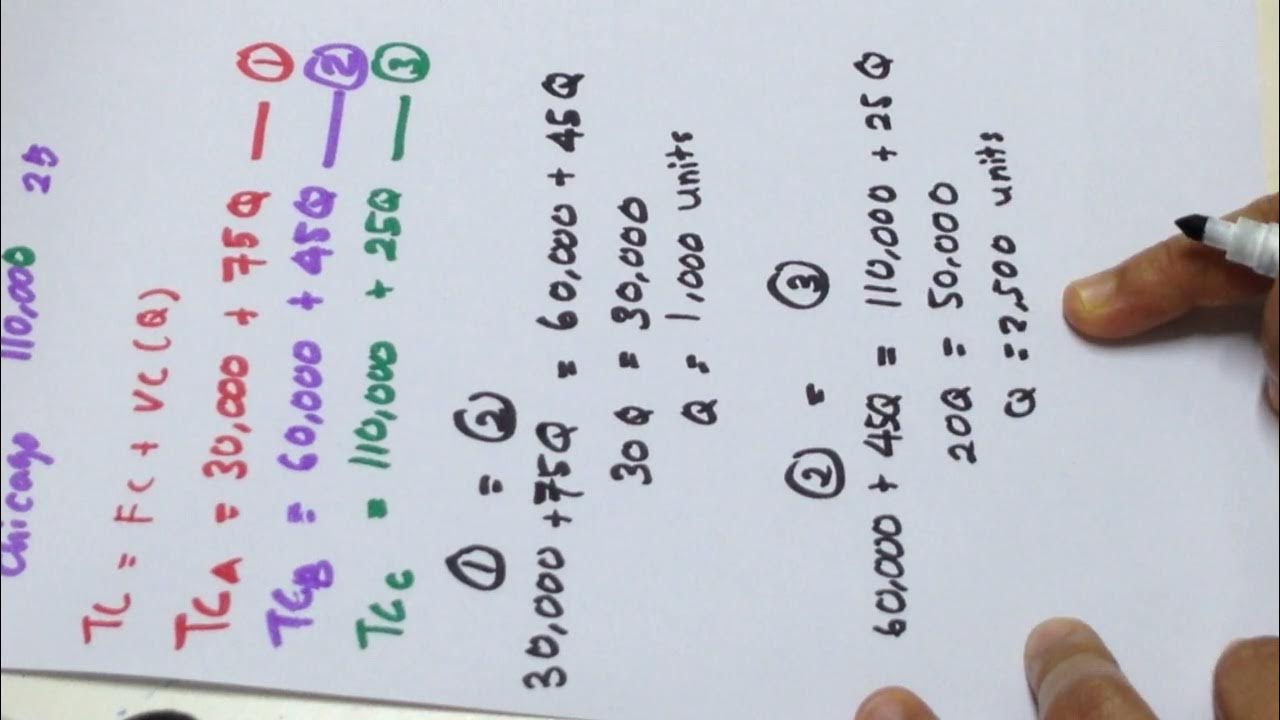 Chicago 110,000 25
TC = FC + VC(Q)
TCA = 30,000 + 75Q — ①
TCB = 60,000 + 45Q — ②
TCC = 110,000 + 25Q — ③
① = ②
30,000 + 75Q = 60,000 + 45Q
30Q = 30,000
Q = 1,000 units
② = ③
60,000 + 45Q = 110,000 + 25Q
20Q = 50,000
Q = 2,500 units